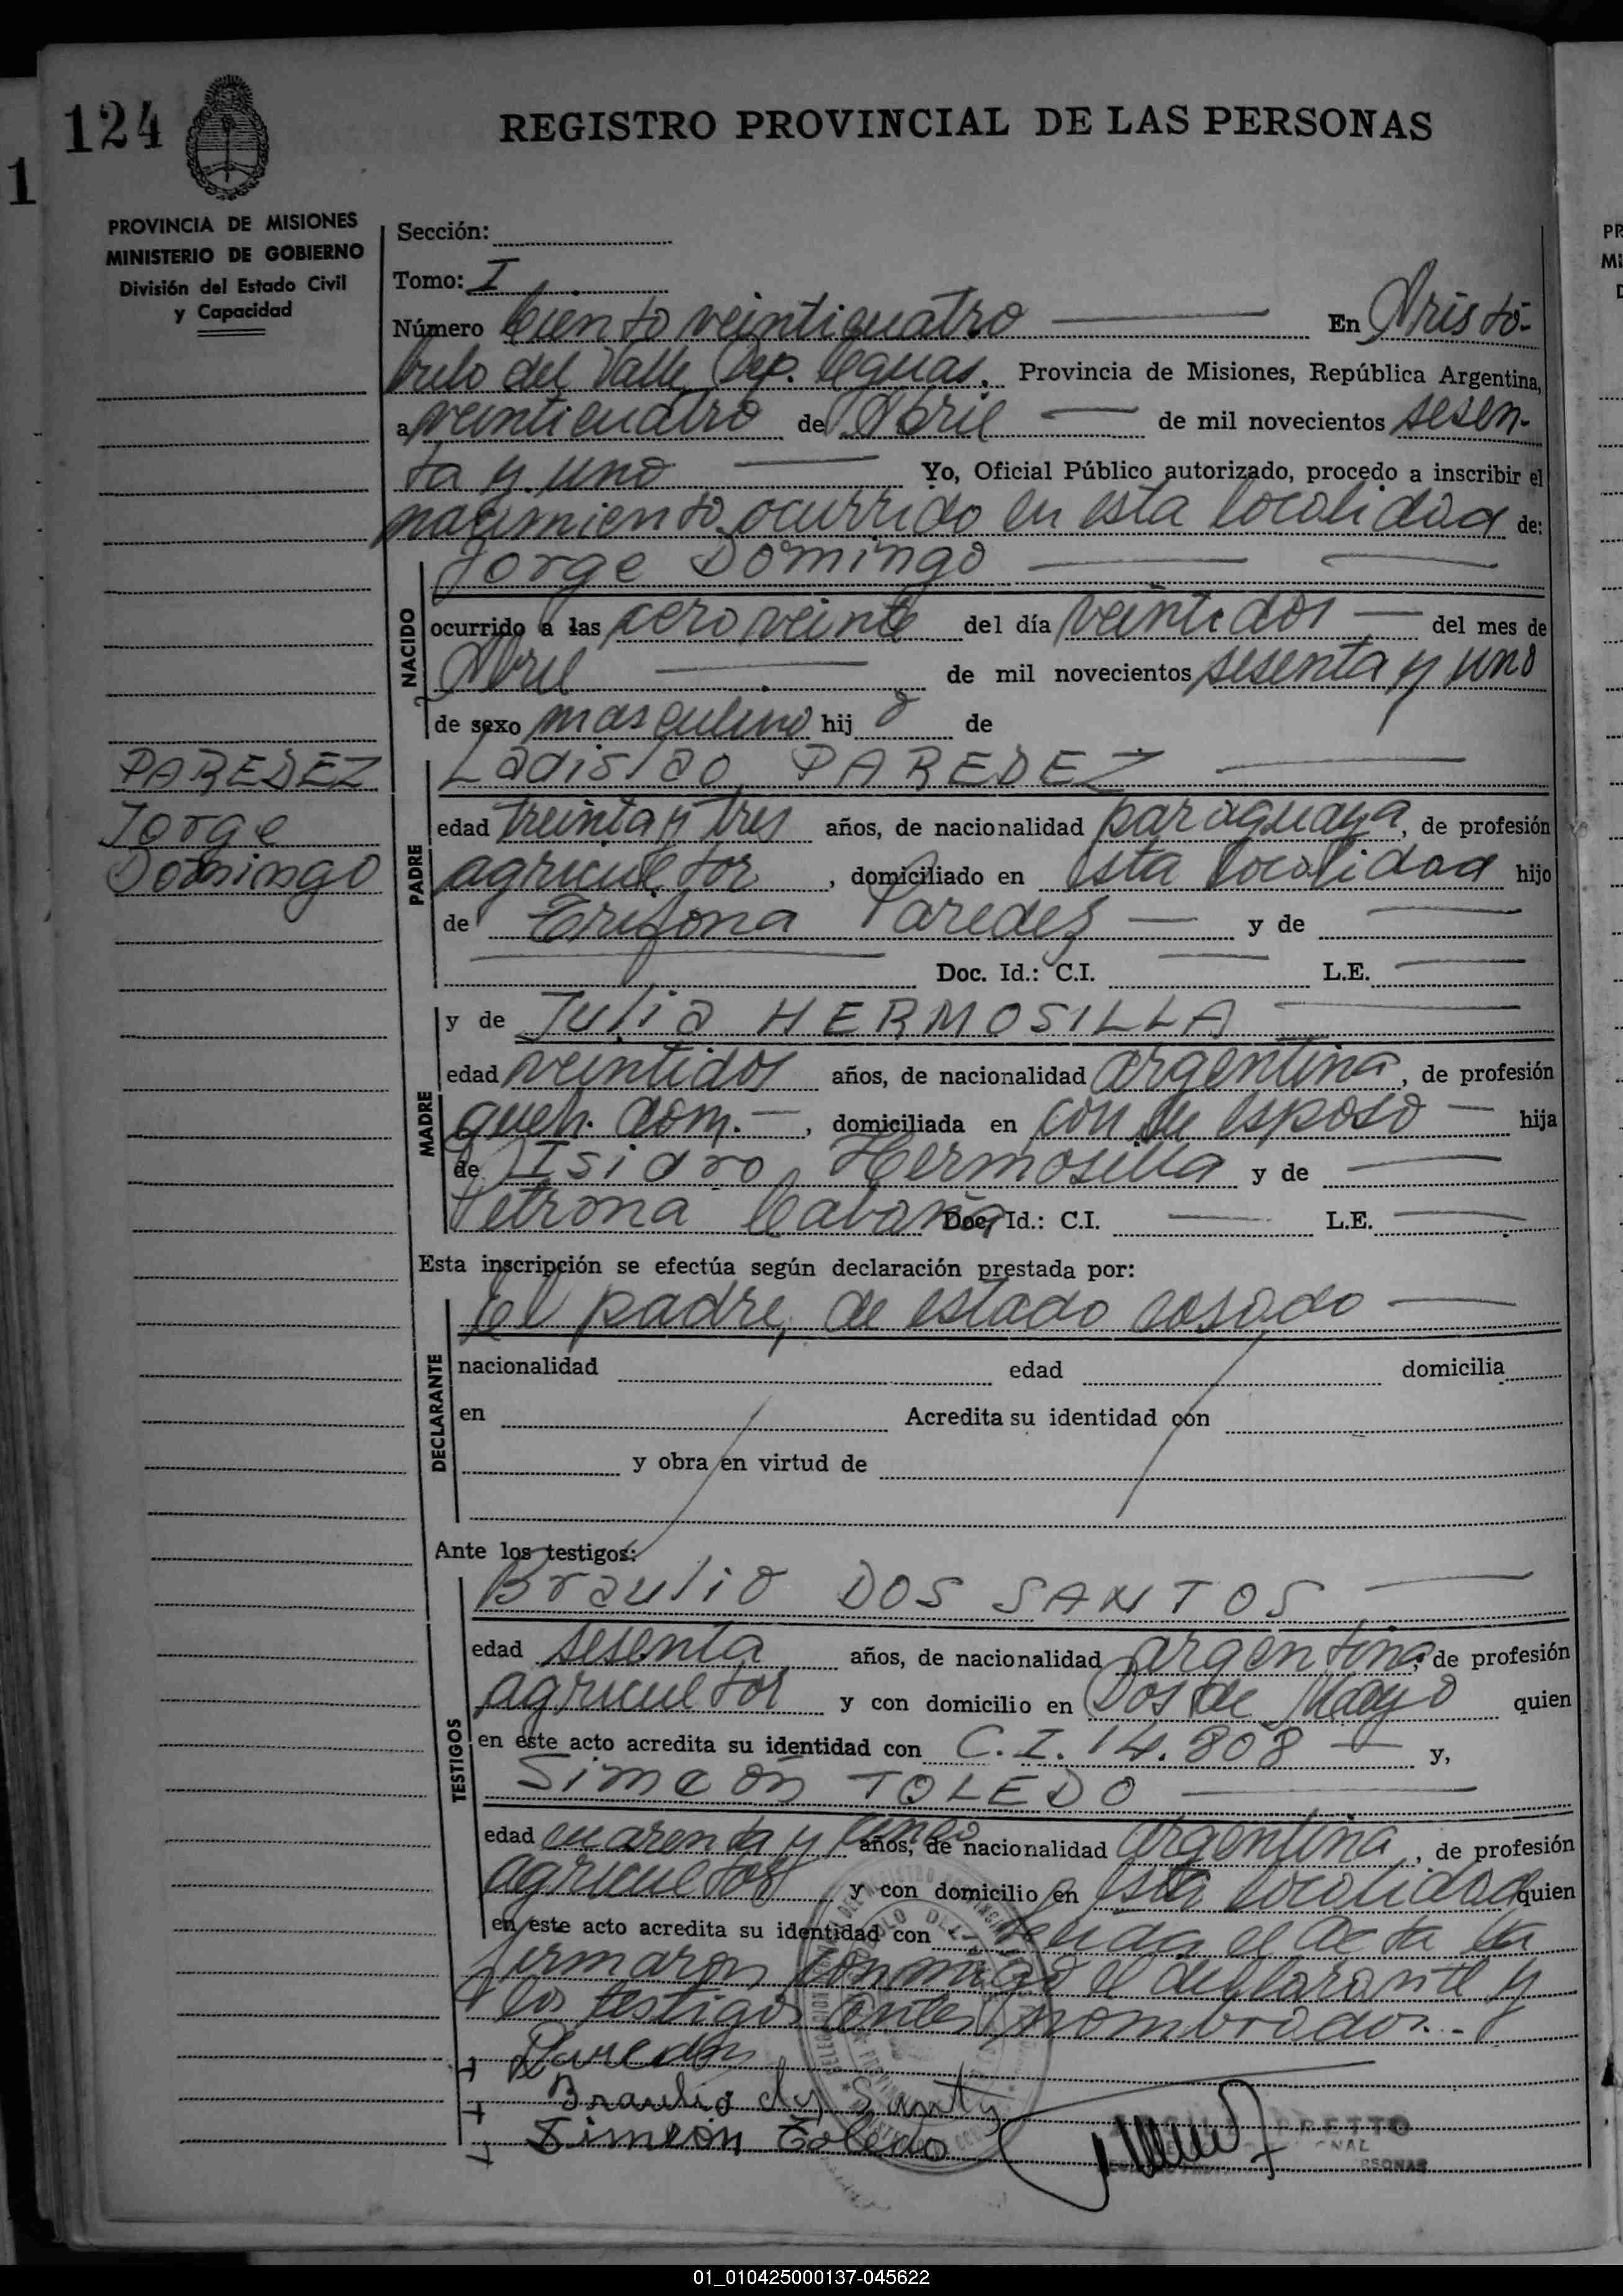 124
1
REGISTRO PROVINCIAL DE LAS PERSONAS
PROVINCIA DE MISIONES
MINISTERIO DE GOBIERNO
División del Estado Civil
y Capacidad
Sección:
Tomo: I
Número Ciento veinticuatro En Aristó-
bulo del Valle, Dep. Caguas. Provincia de Misiones, República Argentina,
a veinticuatro de Abril de mil novecientos sesen-
ta y uno Yo, Oficial Público autorizado, procedo a inscribir el
nacimiento ocurrido en esta localidad de:
Jorge Domingo
NACIDO
ocurrido a las cero veinte del día veintidos del mes de
Abril de mil novecientos sesenta y uno
de sexo masculino hij o de
PAREDEZ
Jorge
Domingo
PADRE
Ladislao PAREDEZ
edad treinta y tres años, de nacionalidad paraguaya, de profesión
agricultor, domiciliado en esta localidad hijo
de Paredez y de
Doc. Id.: C.I. L.E.
MADRE
y de Julia HERMOSILLA
edad veintidos años, de nacionalidad argentina, de profesión
queh. dom. , domiciliada en con su esposo hija
de Isidro Hermosilla y de
Petrona Cabaña Doc. Id.: C.I. L.E.
Esta inscripción se efectúa según declaración prestada por:
DECLARANTE
el padre, de estado casado
nacionalidad edad domicilia
en Acredita su identidad con
y obra en virtud de
Ante los testigos:
TESTIGOS
Braulio DOS SANTOS
edad sesenta años, de nacionalidad argentina, de profesión
agricultor y con domicilio en Dos de Mayo quien
en este acto acredita su identidad con C.I. 14.808 y,
Simeón TOLEDO
edad cuarenta y cinco años, de nacionalidad argentina, de profesión
agricultor y con domicilio en esta localidad quien
en este acto acredita su identidad con Leída el acta la
firmaron conmigo el declarante y
los testigos antes nombrados.-
Paredes
Braulio dos Santos
Simeón Toledo
RETTO
01_010425000137-045622